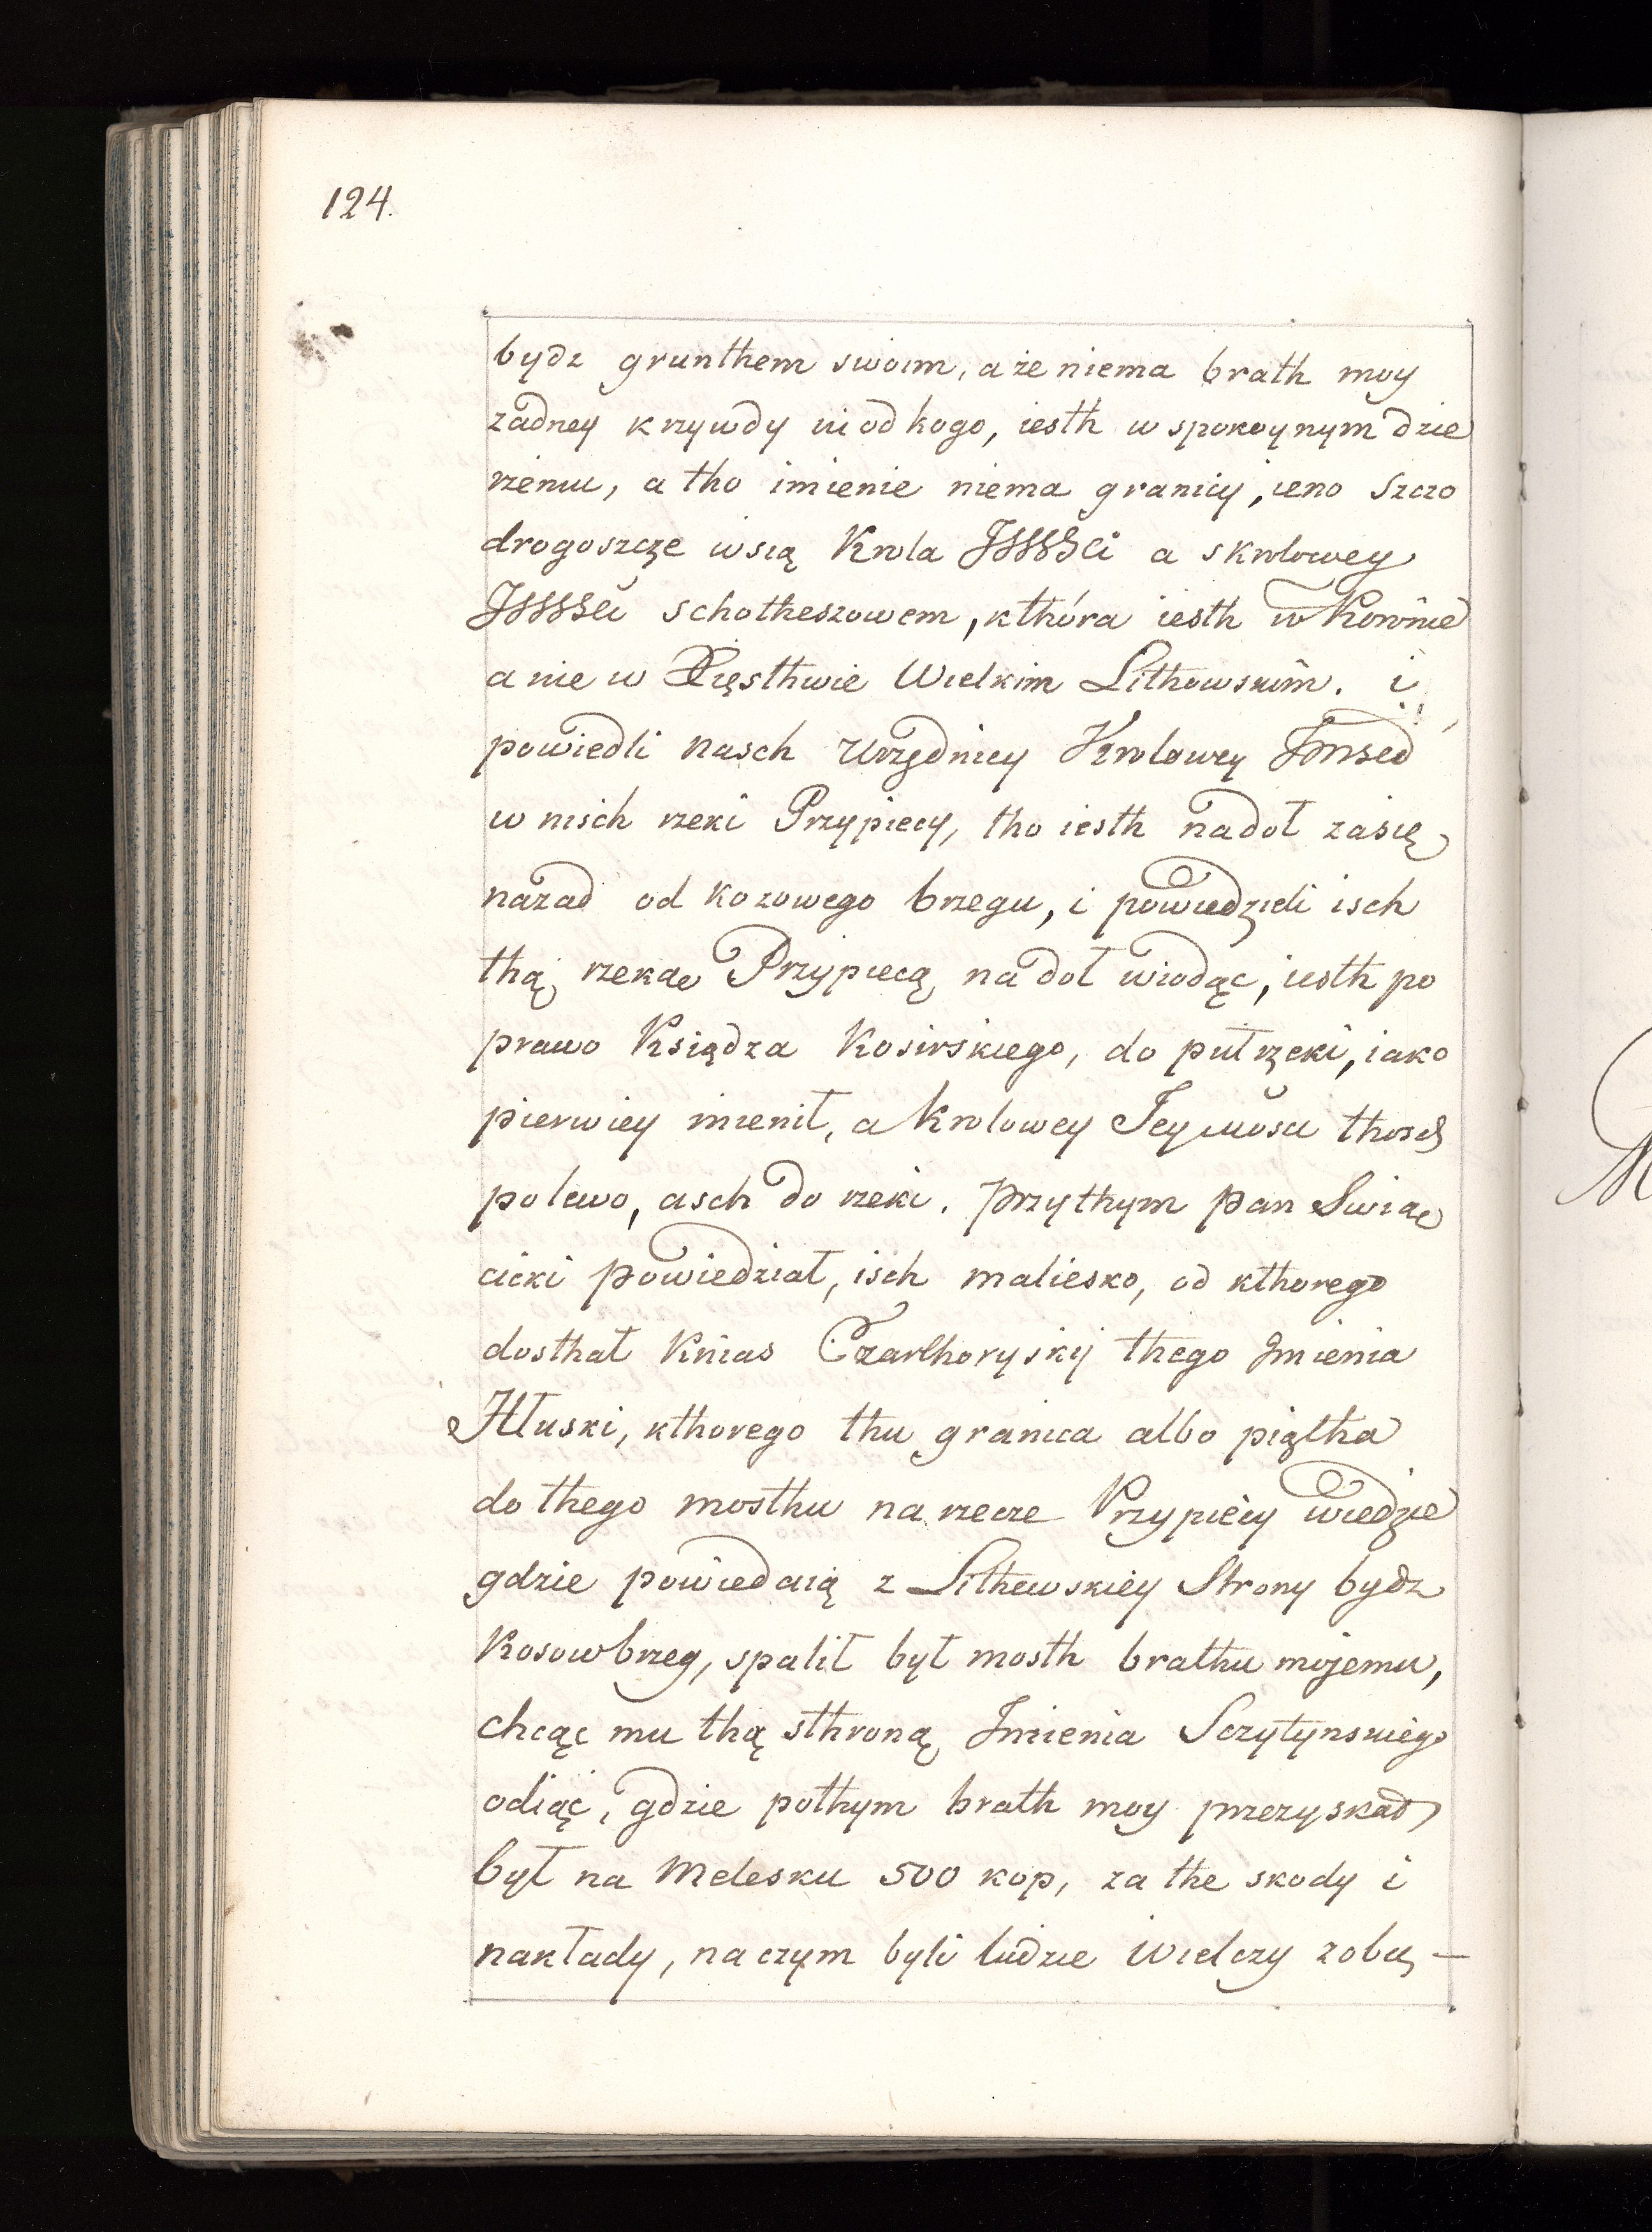 124.
bydz grunthem swoim, a że niema brath moy
żadney krzywdy ni od kogo, iesth w spokoynym dzie
rzeniu, a tho imienie niema granicy, ieno Szczo
drogoszcze wsią Krola a s krolowey
schotheszowem, kthóra iesth w Koronie
a nie w Xięsthwie Wielkim Lithowskim. i
powiedli nasch Urzędnicy Krolowey
w nisch rzeki Przypiecy, tho iesth na doł zasię
nazad od kozowego brzegu, i powiedzieli isch
thą rzekae Przypiecą na doł wiodąc, iesth po
prawo Książdza Kosirskiego, do puł rzeki, iako
pierwiey mienił, a Krolowey
po lewo, asch do rzeki. Przythym pan Swiae
cicki powiedział, isch maliesko, od kthorego
dosthał Knias Czarthoryskij thego Imienia
Hłuski, kthorego thu granica albo piątha
do thego mosthu na rzecze Przypiecy wiedzie
gdzie powiedaią z Lithewskiey Strony bydz
Kosow brzeg, spalił był mosth brathu mojemu,
chcąc mu thą sthroną Imienia Sczytynskiego
odiąć, gdzie pothym brath moy przezyskad
był na Melesku 500 kop, za the skody i
nakłady, na czym byli ludzie Wielczy zobu —